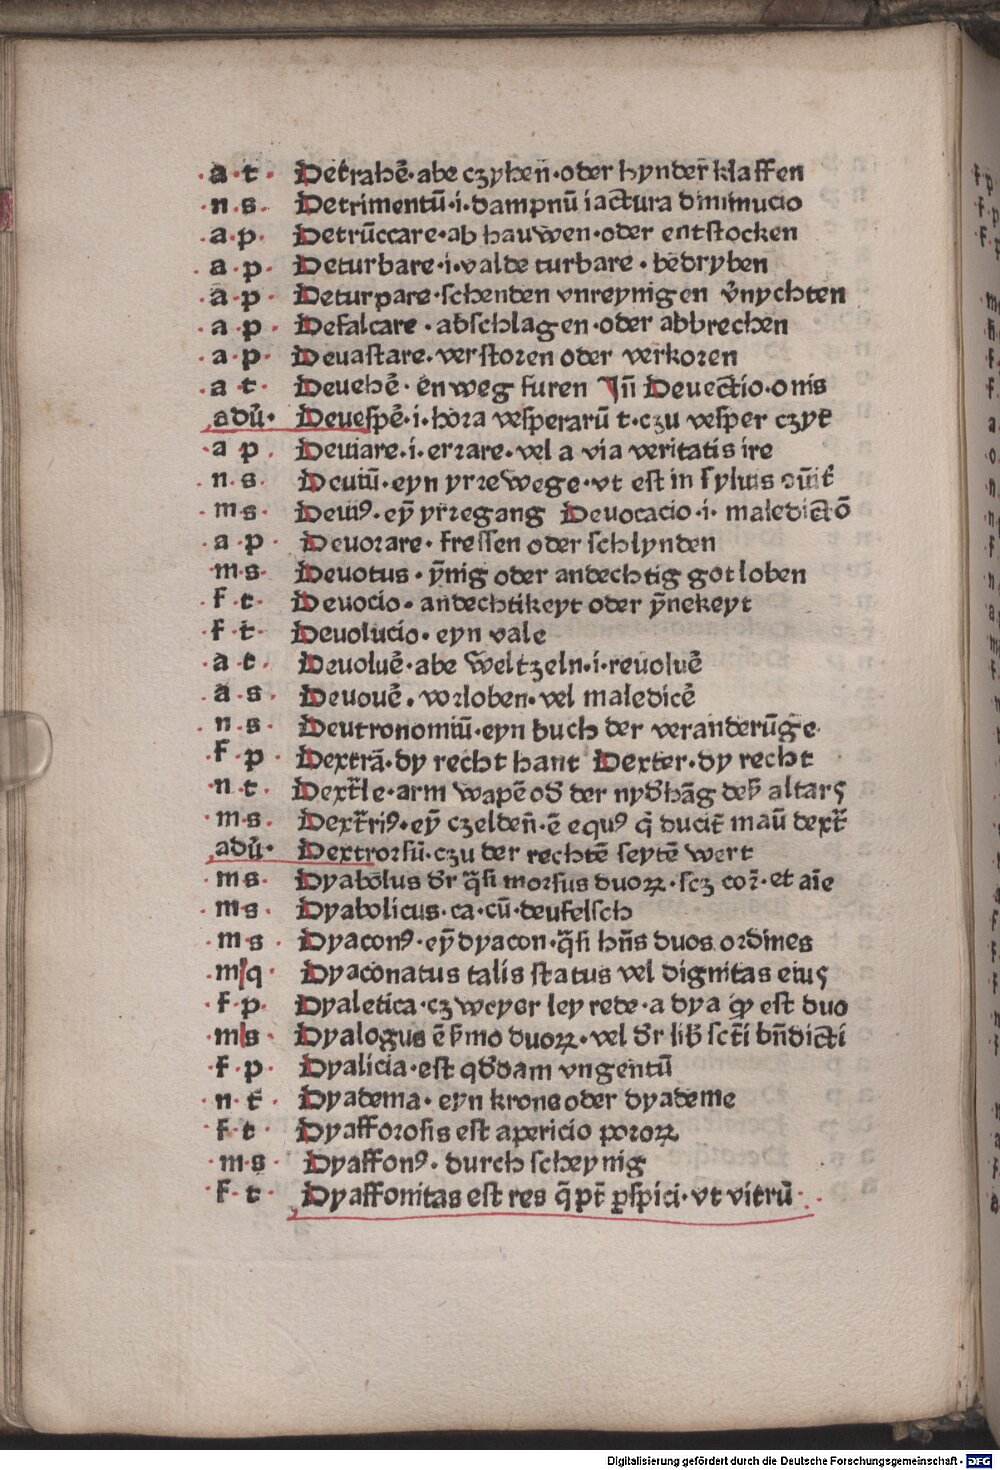 ·a·t· Detrahē·abe czyhen̄·oder hynder klaffen
·n·s· Detrimentū·i·dampnū iactura diminucio
·a·p· Detrūccare·ab hauwen·oder entstocken
·a·p· Deturbare·i·valde turbare·bedryben
·a·p· Deturpare·schenden vnreynigen v̄nychten
·a·p· Defalcare·abschlagen·oder abbrechen
·a·p· Deuastare·verstoren oder verkoren
·a·t· Deuehē·en weg furen Jn̄ Deuectio·onis
adū· Deuespē·i·hora vesperarū t·czu vesper czyt
·a p· Deuiare·i·errare·vel a via veritatis ire
·n·s· Deuiū·eyn yrre wege·vt est in syluis
·ms· Deuiꝰ·eȳ yrregang Deuocacio·i·maledictō
·a·p· Deuorare·fressen oder schlynden
·m·s· Deuotus·ȳnig oder andechtig got loben
·f·t· Deuocio·andechtikeyt oder ȳnekeyt
·f·t· Deuolucio·eyn vale
·a·t· Deuoluē·abe weltzeln·i·reuoluē
·a·s· Deuouē·vorloben·vel maledicē
·n·s· Deutronomiū·eyn buch der veranderūge·
·f·p· Dextrā·dy recht hant Dexter·dy recht
·n·t· Dext̄le·arm wapē od̄ der nyd̄hāg altarꝭ
·m·s· Dext̄riꝰ·eȳ czelden̄·ē equꝰ q̄ ducit̄ maū dext̄
adū· Dextrorsū·czu der rechtē seytē wert
·ms· Dyabolus dr̄ q̄si morsus duoꝝ·scz cor̄·et aīe
·m·s· Dyabolicus·ca·cū·deufelsch
·m·s· Dyaconꝰ·eȳ dyacon·q̄si hn̄s duos ordines
·m q· Dyaconatus talis status vel dignitas eiuꝭ
·f·p· Dyaletica·czweyer ley rede·a dya qͥ est duo
·m s· Dyalogus ē s̄mo duoꝝ·vel dr̄ lib̄ sct̄i bn̄dicti
·f·p· Dyalicia·est qd̄dam vngentū
·n·t· Dyadema·eyn krone oder dyademe
·f·t· Dyafforosis est apericio poroꝝ
·m·s· Dyaffonꝰ·durch scheynig
·f·t· Dyaffonitas est res q̄ pt̄ ꝑspici·vt vitrū·
Digitalisierung gefördert durch die Deutsche Forschungsgemeinschaft - DFG